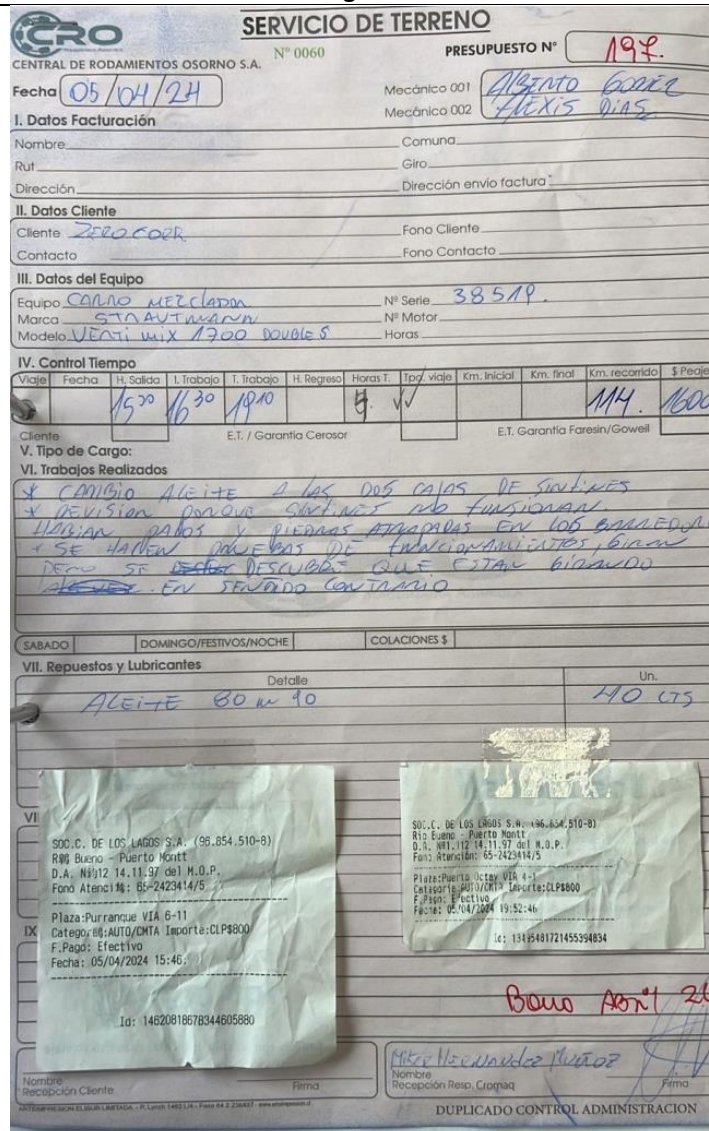 CRO
SERVICIO DE TERRENO
Nº 0060
PRESUPUESTO Nº 197.
CENTRAL DE RODAMIENTOS OSORNO S.A.
Fecha 05/04/24
Mecánico 001 Albento Gomez
Mecánico 002 Alexis Dias
I. Datos Facturación
Nombre
Comuna
Rut
Giro
Dirección
Dirección envio factura
II. Datos Cliente
Cliente ZEROCORR
Fono Cliente
Contacto
Fono Contacto
III. Datos del Equipo
Equipo CARRO MEZCLADOR
Nº Serie 38519.
Marca STRAUTMANN
Nº Motor
Modelo VERTI MIX 1700 DOUBLE S
Horas
IV. Control Tiempo
Viaje Fecha H. Salida I. Trabajo T. Trabajo H. Regreso Horas T. Tpo. viaje Km. Inicial Km. final Km. recorrido $ Peaje
15 30 16 30 19 10 114. 1600
Cliente E.T. / Garantía Cerosor E.T. Garantía Faresin/Goweil
V. Tipo de Cargo:
VI. Trabajos Realizados
* CAMBIO ACEITE A LAS DOS CAJAS DE SINFINES
* REVISION PORQUE SINFINES NO FUNSIONAN.
HABIAN PALOS Y PIEDRAS ATRAPADAS EN LOS BARREDOR
* SE HACEN PRUEBAS DE FUNCIONAMIENTOS, GIRAN
PERO SE DESCUBRE QUE ESTAN GIRANDO
EN SENTIDO CONTRARIO
SABADO DOMINGO/FESTIVOS/NOCHE COLACIONES $
VII. Repuestos y Lubricantes
Detalle Un.
ACEITE 80 W 90 40 LTS
SOC.C. DE LOS LAGOS S.A. (96.854.510-8)
Bueno - Puerto Montt
14.11.97 del M.O.P.
65-2423414/5
Plaza:Purranque VIA 6-11
AUTO/CMTA Importe:CLP$800
F.Pago: Efectivo
Fecha: 05/04/2024 15:46:
Id: 14620818678344605880
SOC.C. DE LOS LAGOS S.A. (96.854.510-8)
Rio Bueno - Puerto Montt
14.11.97 del M.O.P.
Fono Atención: 65-2423414/5
Plaza:Puerto Octay VIA 4-1
Categoría:AUTO/CMTA Importe:CLP$800
F.Pago: Efectivo
Fecha: 05/04/2024 19:52:46
Id: 13495481721455394834
IX
Bono Abril 24
Miker Hernandez Muñoz
Nombre
Recepción Cliente
Firma
Nombre
Recepción Resp. Cromaq
Firma
DUPLICADO CONTROL ADMINISTRACION